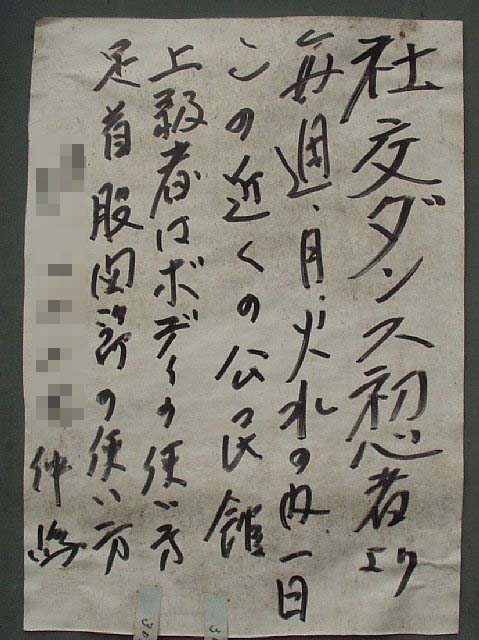 社交ダンス初心者ヨリ
毎週・月・火水の内一日
この近くの公民館
上級者はボディの使い方
足首股関節の使い方
仲嶋